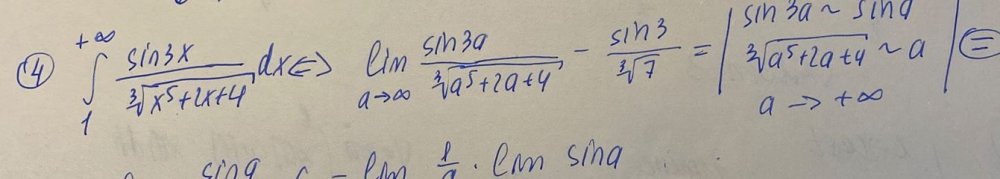 ④ +∞ ∫ 1 sin3x / ∛(x⁵+2x+4) dx ⇔ lim a→∞ sin3a / ∛(a⁵+2a+4) - sin3 / ∛7 = | sin3a ~ sina ∛(a⁵+2a+4) ~ a a → +∞ | =
sina = lim 1/a · lim sina